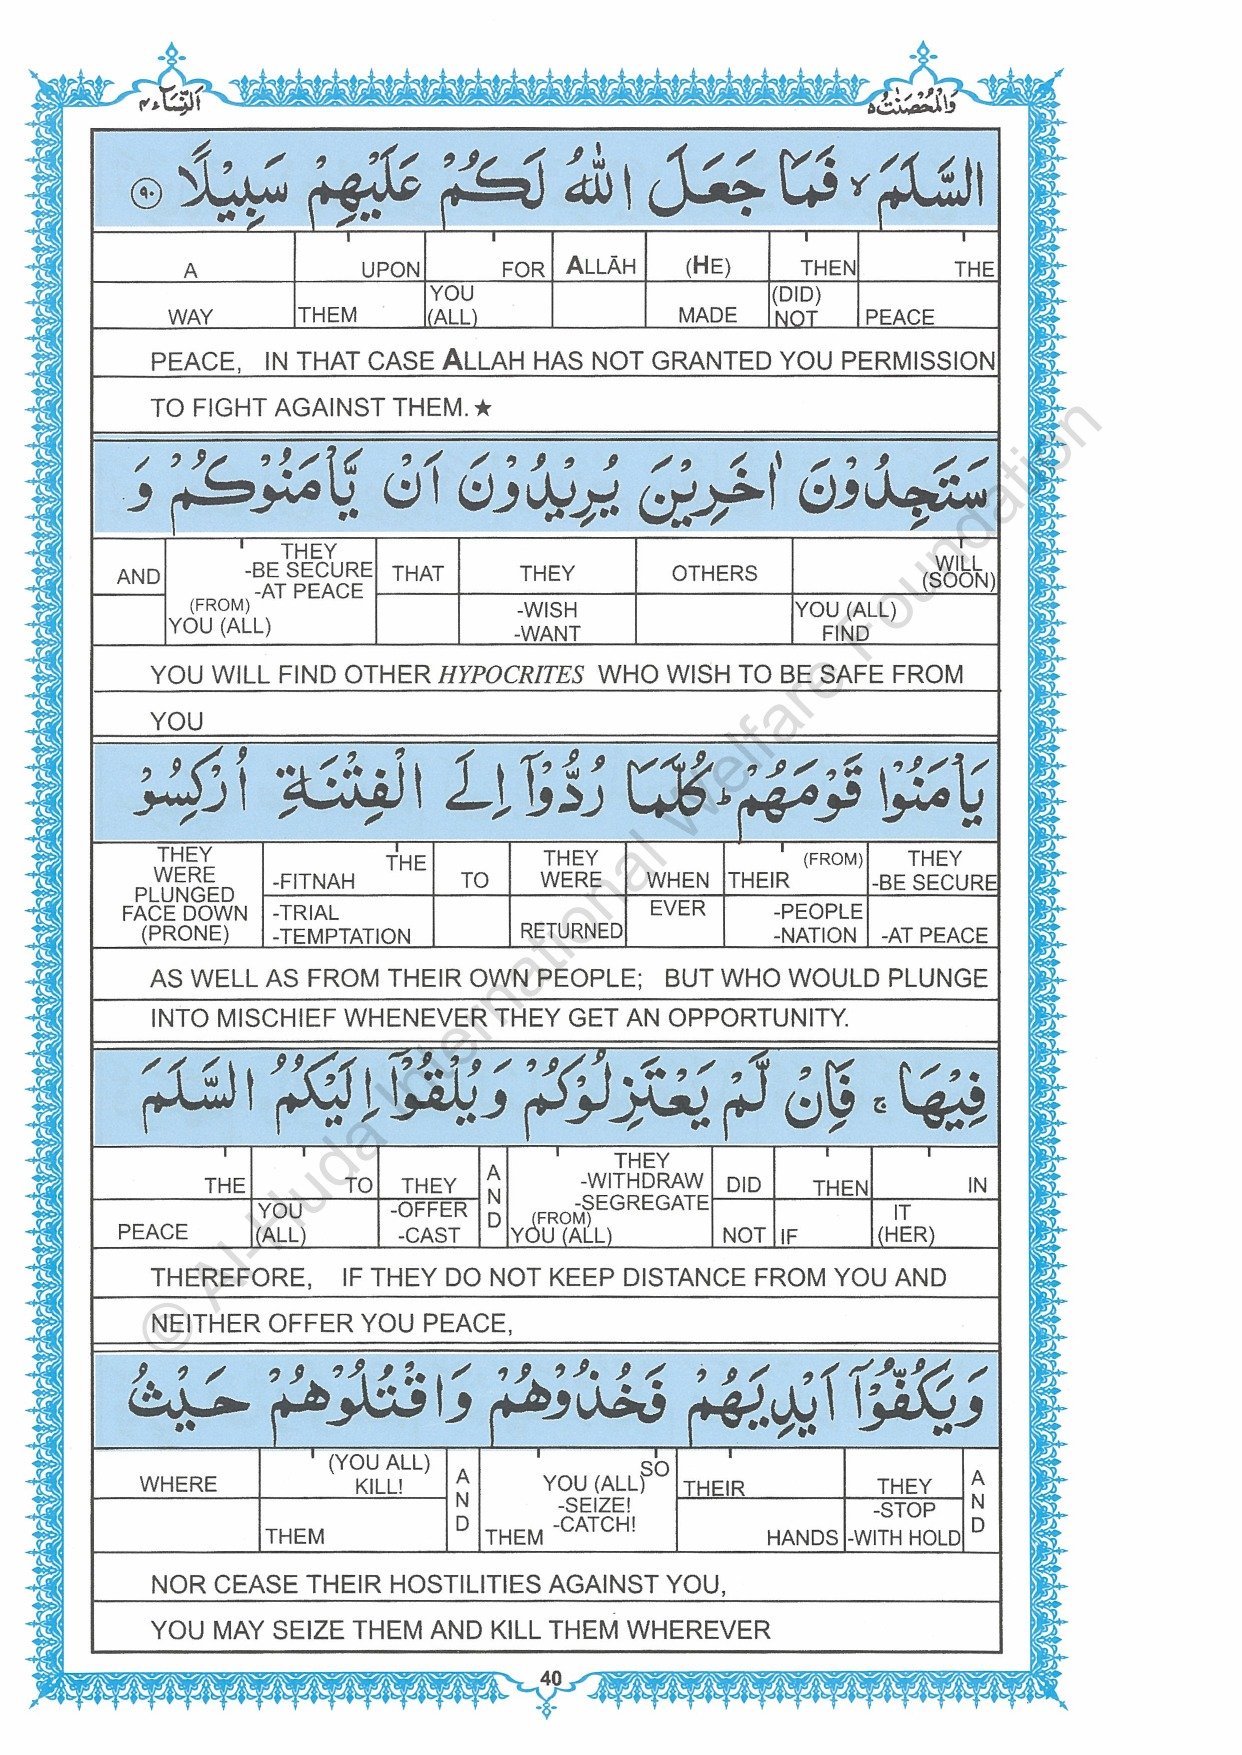 النِّسَاء ٤
وَالْمُحْصَنٰتُ ٥
السَّلَمَ ۙ فَمَا جَعَلَ اللّٰهُ لَكُمْ عَلَيْهِمْ سَبِيْلًا ٩٠
A UPON FOR ALLĀH (HE) THEN THE
WAY THEM YOU (ALL) MADE (DID) NOT PEACE
PEACE, IN THAT CASE ALLAH HAS NOT GRANTED YOU PERMISSION
TO FIGHT AGAINST THEM.★
سَتَجِدُوْنَ اٰخَرِيْنَ يُرِيْدُوْنَ اَنْ يَّاْمَنُوْكُمْ وَ
AND THEY -BE SECURE -AT PEACE THAT THEY OTHERS WILL (SOON)
(FROM) YOU (ALL) -WISH -WANT YOU (ALL) FIND
YOU WILL FIND OTHER HYPOCRITES WHO WISH TO BE SAFE FROM
YOU
يَاْمَنُوْا قَوْمَهُمْ ؕ كُلَّمَا رُدُّوْۤا اِلَى الْفِتْنَةِ اُرْكِسُوْ
THEY WERE PLUNGED FACE DOWN (PRONE) THE -FITNAH TO THEY WERE WHEN THEIR (FROM) THEY -BE SECURE
-TRIAL -TEMPTATION RETURNED EVER -PEOPLE -NATION -AT PEACE
AS WELL AS FROM THEIR OWN PEOPLE; BUT WHO WOULD PLUNGE
INTO MISCHIEF WHENEVER THEY GET AN OPPORTUNITY.
فِيْهَا ۚ فَاِنْ لَّمْ يَعْتَزِلُوْكُمْ وَيُلْقُوْۤا اِلَيْكُمُ السَّلَمَ
THE TO THEY AND THEY -WITHDRAW -SEGREGATE DID THEN IN
PEACE YOU (ALL) -OFFER -CAST (FROM) YOU (ALL) NOT IF IT (HER)
THEREFORE, IF THEY DO NOT KEEP DISTANCE FROM YOU AND
NEITHER OFFER YOU PEACE,
وَيَكُفُّوْۤا اَيْدِيَهُمْ فَخُذُوْهُمْ وَاقْتُلُوْهُمْ حَيْثُ
WHERE (YOU ALL) KILL! AND YOU (ALL) -SEIZE! -CATCH! SO THEIR THEY AND
THEM THEM HANDS -STOP -WITH HOLD
NOR CEASE THEIR HOSTILITIES AGAINST YOU,
YOU MAY SEIZE THEM AND KILL THEM WHEREVER
40
© Al-Huda International Welfare Foundation